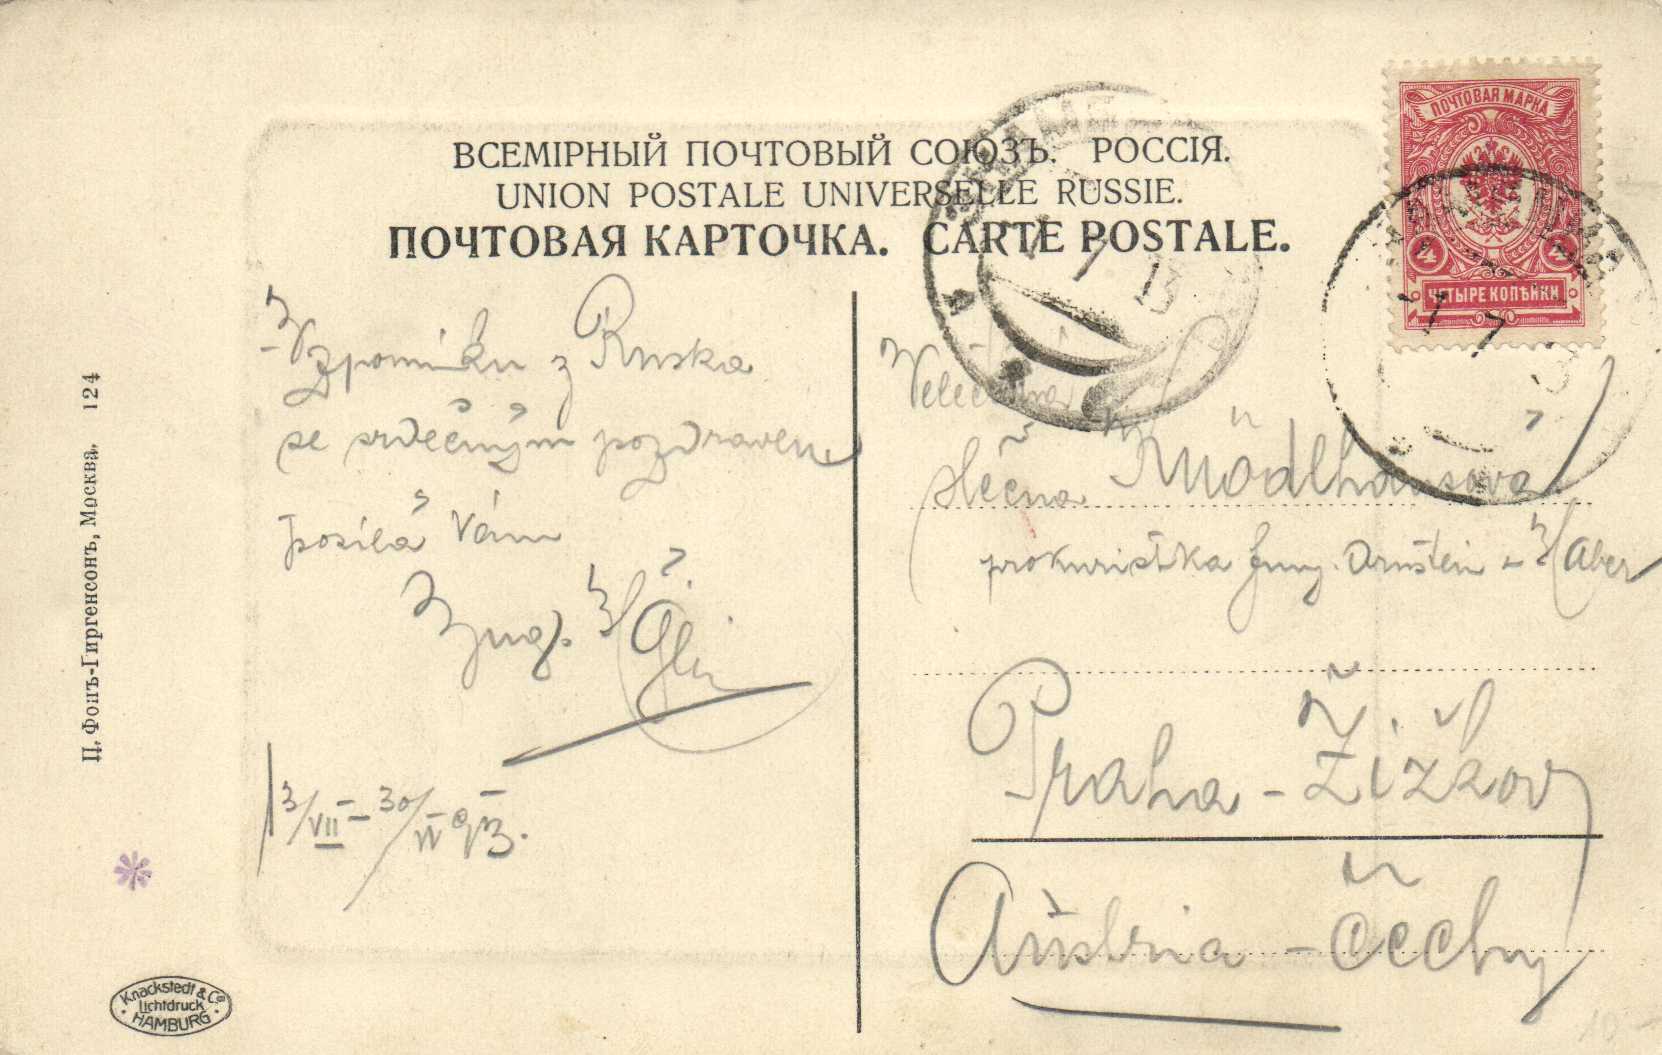 ВСЕМІРНЫЙ ПОЧТОВЫЙ СОЮЗЪ. РОССІЯ.
UNION POSTALE UNIVERSELLE RUSSIE.
ПОЧТОВАЯ КАРТОЧКА. CARTE POSTALE.
ПОЧТОВАЯ МАРКА
4 4
ЧЕТЫРЕ КОПѢЙКИ
Vzpomínku z Ruska
se srdečným pozdravem
posílá Vám
13/VII – 30/VI 913.
Velectěná
slečna
prokuristka
Praha - Žižkov
Austria - Čechy
П. Фонъ-Гиргенсонъ, Москва. 124
Knackstedt & Co
Lichtdruck
HAMBURG